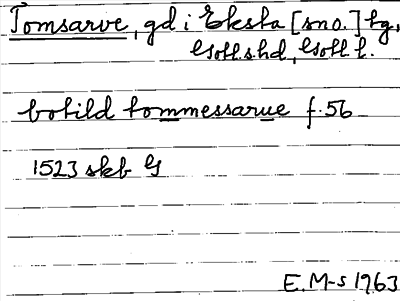 Tomsarve, gd i Eksta [sno.] tg,
Gotl.s.hd, Gotl. l.
botild tommessarue f. 56
1523 skb G
E. M-s 1963